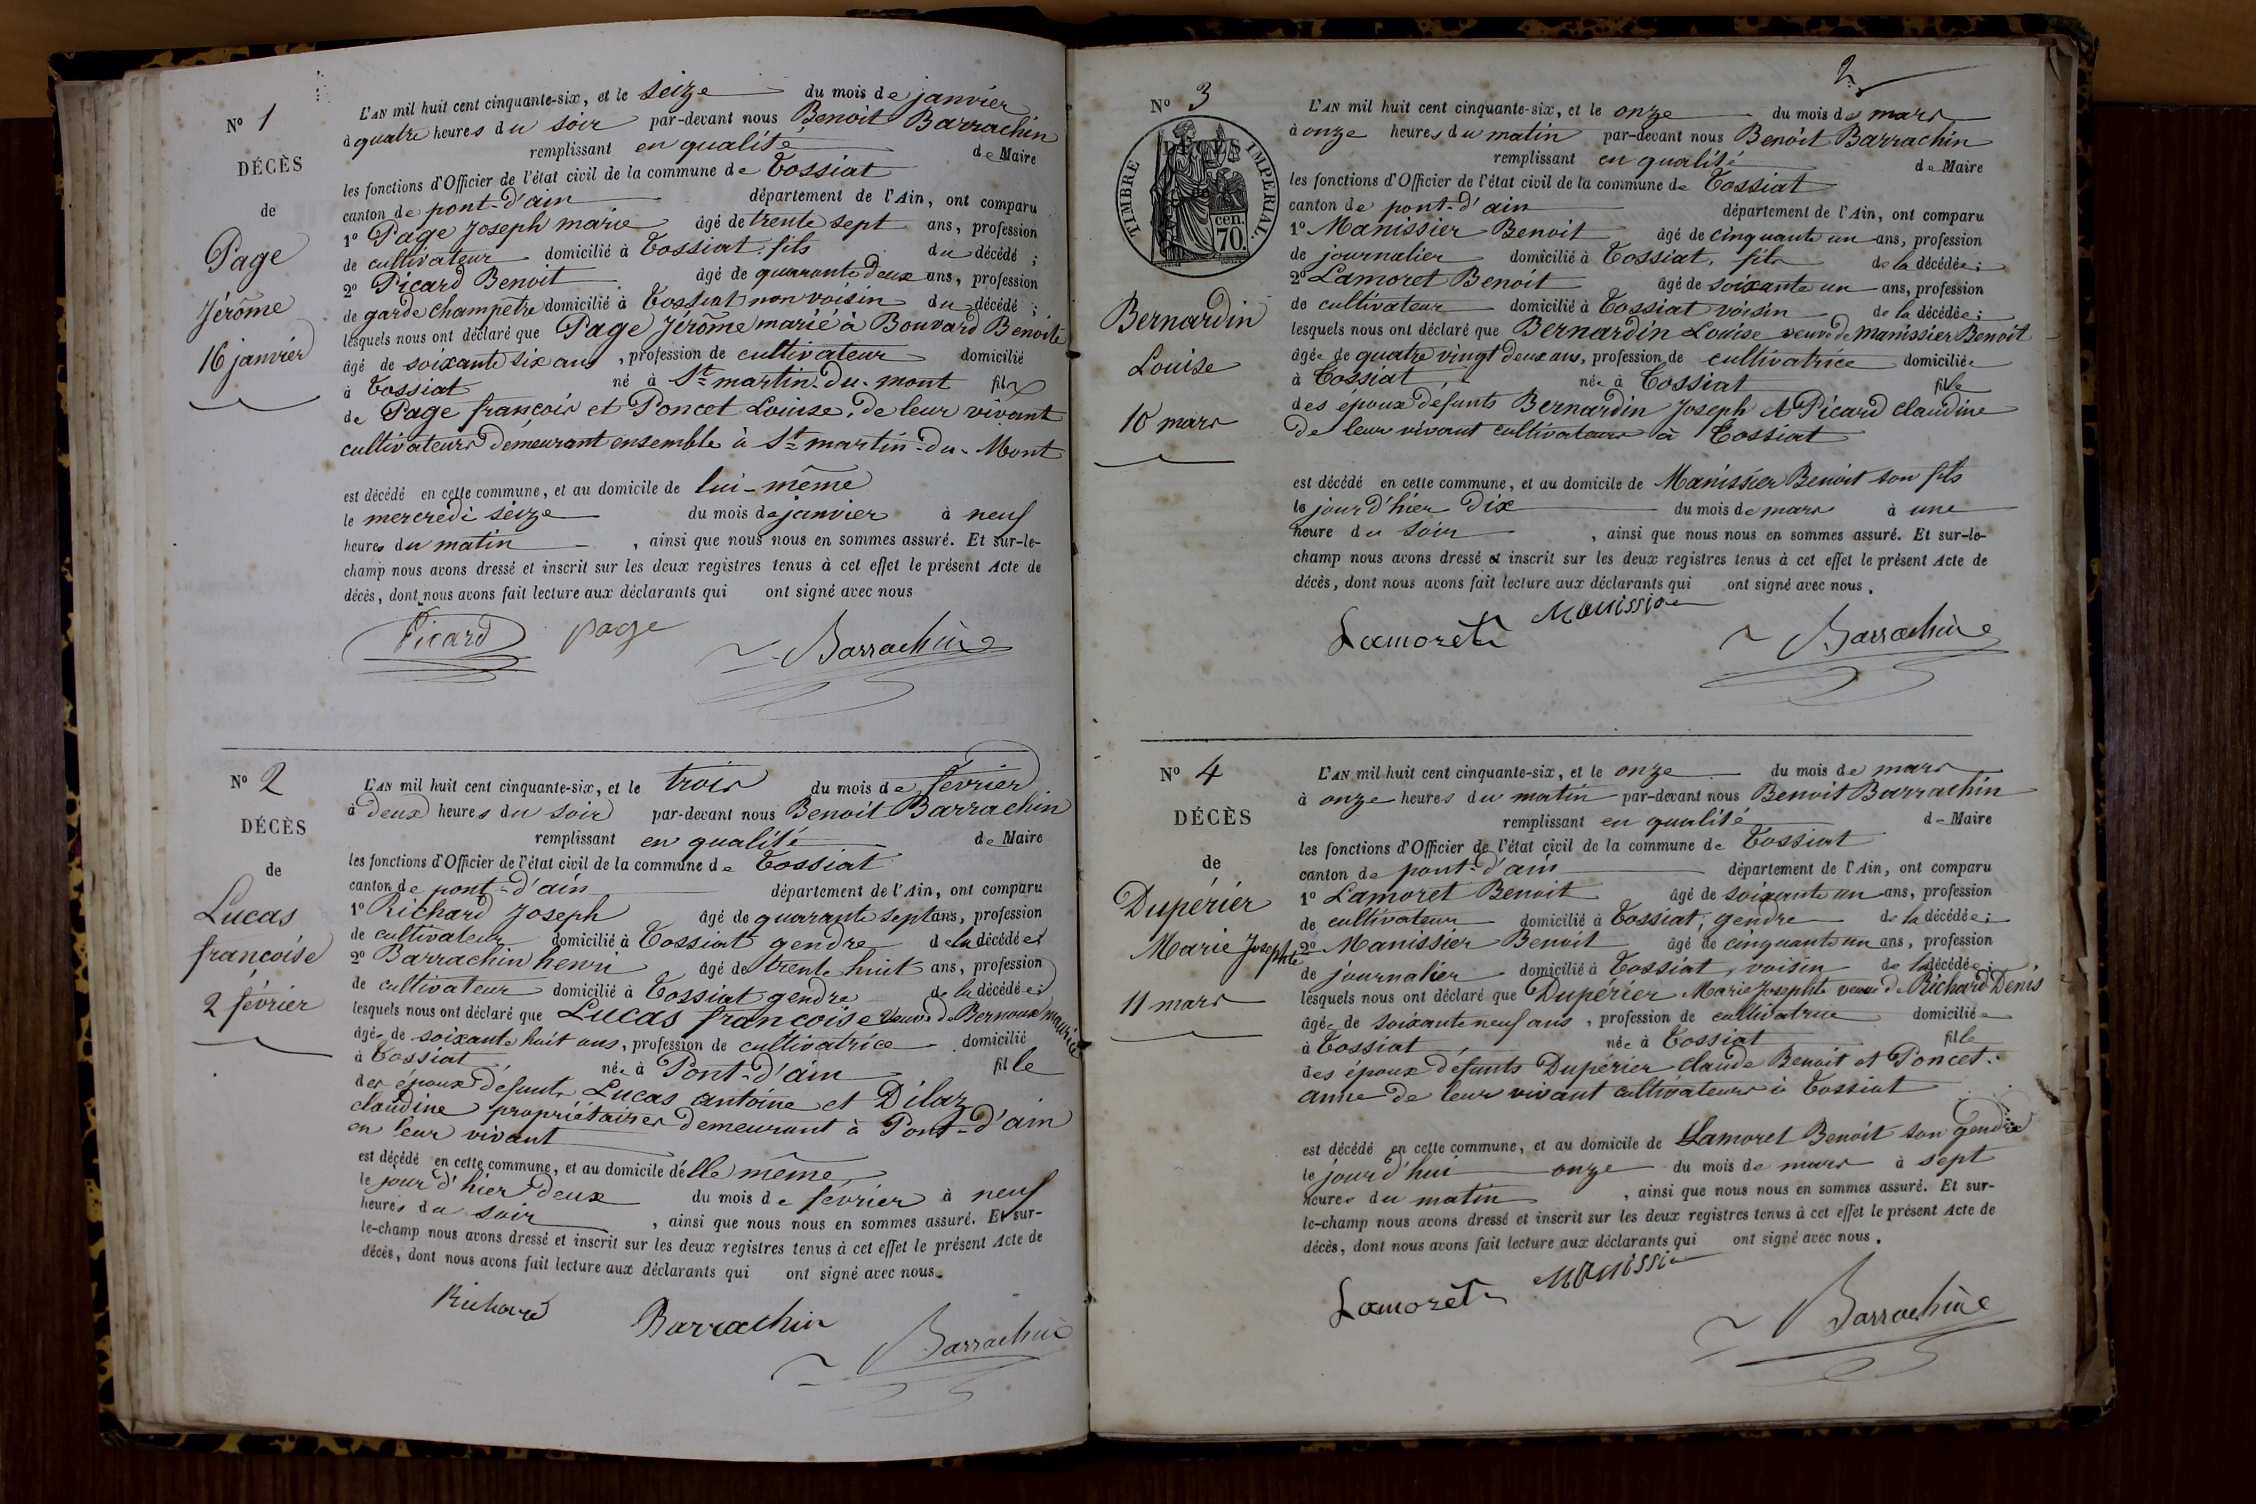 N° 1
DÉCÈS
de
Page
Jérôme
16 janvier
L'AN mil huit cent cinquante-six, et le seize du mois de janvier
à quatre heures du soir par-devant nous Benoit Barrachin
remplissant en qualité de Maire
les fonctions d'Officier de l'état civil de la commune de Tossiat
canton de pont-d'ain département de l'Ain, ont comparu
1° Page Joseph marie âgé de trente sept ans, profession
de cultivateur domicilié à Tossiat, fils du décédé ;
2° Picard Benoit âgé de quarante deux ans, profession
de garde champetre domicilié à Tossiat non voisin du décédé ;
lesquels nous ont déclaré que Page Jérôme marié à Bouvard Benoite
âgé de soixante six ans, profession de cultivateur domicilié
à Tossiat né à St martin-du-mont fils
de Page françois et Poncet Louise, de leur vivant
cultivateurs demeurant ensemble à St martin-du-Mont
est décédé en cette commune, et au domicile de lui-même
le mercredi seize du mois de janvier à neuf
heures du matin, ainsi que nous nous en sommes assuré. Et sur-le-
champ nous avons dressé et inscrit sur les deux registres tenus à cet effet le présent Acte de
décès, dont nous avons fait lecture aux déclarants qui ont signé avec nous
Picard page Barrachin
N° 2
DÉCÈS
de
Lucas
françoise
2 février
L'AN mil huit cent cinquante-six, et le trois du mois de février
à deux heures du soir par-devant nous Benoit Barrachin
remplissant en qualité de Maire
les fonctions d'Officier de l'état civil de la commune de Tossiat
canton de pont-d'ain département de l'Ain, ont comparu
1° Richard Joseph âgé de quarante sept ans, profession
de cultivateur domicilié à Tossiat gendre de la décédée ;
2° Barrachin henri âgé de trente huit ans, profession
de cultivateur domicilié à Tossiat gendre de la décédée ;
lesquels nous ont déclaré que Lucas françoise veuve de Bernoux maurice
âgée de soixante huit ans, profession de cultivatrice domicilié
à Tossiat, née à Pont-d'ain fille
des époux défunts Lucas antoine et Dilaz
claudine propriétaires demeurant à Pont-d'ain
en leur vivant
est décédé en cette commune, et au domicile d'élle même
le jour d'hier deux du mois de février à neuf
heures du soir, ainsi que nous nous en sommes assuré. Et sur-
le-champ nous avons dressé et inscrit sur les deux registres tenus à cet effet le présent Acte de
décès, dont nous avons fait lecture aux déclarants qui ont signé avec nous.
Richard Barrachin Barrachin
2
N° 3
DÉCÈS
TIMBRE IMPÉRIAL.
cen.
70.
Bernardin
Louise
10 mars
L'AN mil huit cent cinquante-six, et le onze du mois de mars
à onze heures du matin par-devant nous Benoit Barrachin
remplissant en qualité de Maire
les fonctions d'Officier de l'état civil de la commune de Tossiat
canton de pont-d'ain département de l'Ain, ont comparu
1° Manissier Benoit âgé de cinquante un ans, profession
de journalier domicilié à Tossiat, fils de la décédée ;
2° Lamoret Benoit âgé de soixante un ans, profession
de cultivateur domicilié à Tossiat voisin de la décédée ;
lesquels nous ont déclaré que Bernardin Louise veuve de Manissier Benoit
âgée de quatre vingt deux ans, profession de cultivatrice domiciliée
à Tossiat, née à Tossiat fille
des époux défunts Bernardin Joseph et Picard claudine
De leur vivant cultivateurs à Tossiat
est décédé en cette commune, et au domicile de Manissier Benoit son fils
le jour d'hier dix du mois de mars à une
heure du soir, ainsi que nous nous en sommes assuré. Et sur-le-
champ nous avons dressé et inscrit sur les deux registres tenus à cet effet le présent Acte de
décès, dont nous avons fait lecture aux déclarants qui ont signé avec nous.
Lamoret Manissier Barrachin
N° 4
DÉCÈS
de
Dupérier
Marie Josephte
11 mars
L'AN mil huit cent cinquante-six, et le onze du mois de mars
à onze heures du matin par-devant nous Benoit Barrachin
remplissant en qualité de Maire
les fonctions d'Officier de l'état civil de la commune de Tossiat
canton de pont-d'ain département de l'Ain, ont comparu
1° Lamoret Benoit âgé de soixante un ans, profession
de cultivateur domicilié à Tossiat, gendre de la décédée ;
2° Manissier Benoit âgé de cinquante un ans, profession
de journalier domicilié à Tossiat, voisin de la décédée ;
lesquels nous ont déclaré que Dupérier Marie Josephte veuve de Richard Denis
âgée de soixante neuf ans, profession de cultivatrice domiciliée
à Tossiat, née à Tossiat fille
des époux défunts Dupérier Claude Benoit et Poncet
anne de leur vivant cultivateurs à Tossiat
est décédé en cette commune, et au domicile de Lamoret Benoit son gendre
le jour d'hui onze du mois de mars à sept
heures du matin, ainsi que nous nous en sommes assuré. Et sur-
le-champ nous avons dressé et inscrit sur les deux registres tenus à cet effet le présent Acte de
décès, dont nous avons fait lecture aux déclarants qui ont signé avec nous.
Lamoret Manissier Barrachin